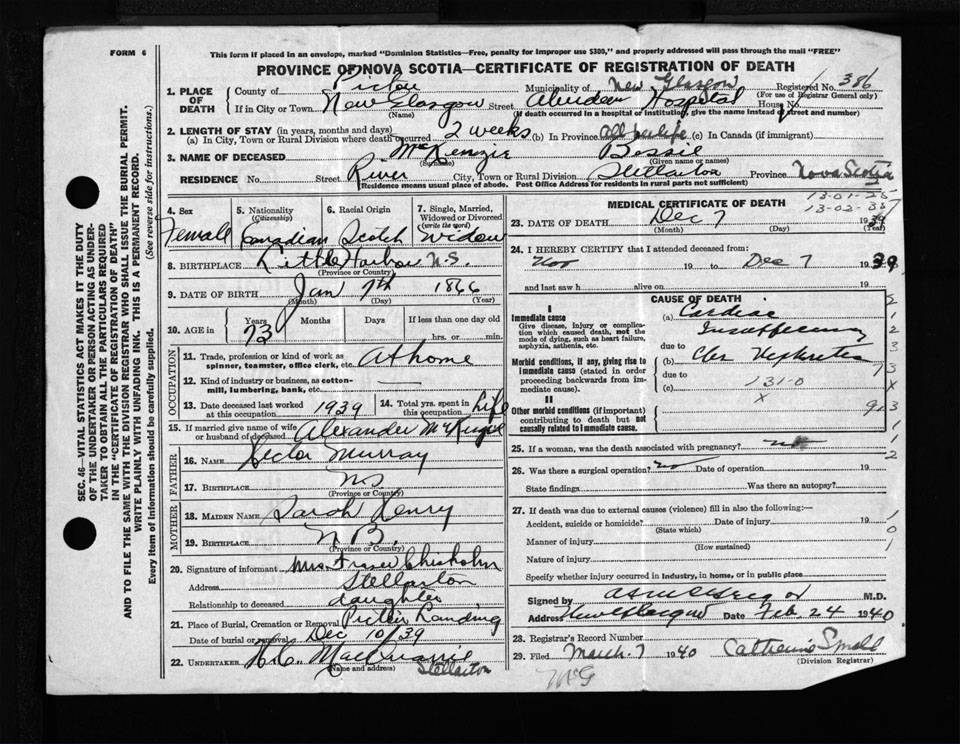 FORM 6
This form if placed in an envelope, marked "Dominion Statistics—Free, penalty for improper use $300," and properly addressed will pass through the mail "FREE"
PROVINCE OF NOVA SCOTIA—CERTIFICATE OF REGISTRATION OF DEATH
1. PLACE OF DEATH
County of Pictou Municipality of New Glasgow Registered No. 386
(For use of Registrar General only)
If in City or Town New Glasgow Street Aberdeen Hospital House No.
(Name) (If death occurred in a hospital or institution, give the name instead of street and number)
2. LENGTH OF STAY (in years, months and days)
(a) In City, Town or Rural Division where death occurred 2 weeks (b) In Province all her life (c) In Canada (if immigrant)
3. NAME OF DECEASED McKenzie Bessie
(Surname) (Given name or names)
RESIDENCE No. Street River City, Town or Rural Division Stellarton Province Nova Scotia
(Residence means usual place of abode. Post Office Address for residents in rural parts not sufficient)
4. Sex 5. Nationality (Citizenship) 6. Racial Origin 7. Single, Married, Widowed or Divorced (write the word)
Female Canadian Scotch widow
8. BIRTHPLACE Little Harbour N.S.
(Province or Country)
9. DATE OF BIRTH Jan 7th 1866
(Month) (Day) (Year)
10. AGE in Years Months Days If less than one day old
73 hrs. or min.
OCCUPATION
11. Trade, profession or kind of work as spinner, teamster, office clerk, etc. At home
12. Kind of industry or business, as cotton-mill, lumbering, bank, etc. —
13. Date deceased last worked at this occupation 1939 14. Total yrs. spent in this occupation Life
15. If married give name of wife or husband of deceased Alexander McKenzie
FATHER
16. NAME Hector Murray
17. BIRTHPLACE N.S
(Province or Country)
MOTHER
18. MAIDEN NAME Sarah Henry
19. BIRTHPLACE N B.
(Province or Country)
20. Signature of informant Mrs. Fraser Chisholm
Address Stellarton
Relationship to deceased daughter
21. Place of Burial, Cremation or Removal Pictou Landing
Date of burial or removal Dec 10/39
22. UNDERTAKER H.C. MacQuarrie Stellarton
(Name and address)
MEDICAL CERTIFICATE OF DEATH
23. DATE OF DEATH Dec 7 1939
(Month) (Day) (Year)
24. I HEREBY CERTIFY that I attended deceased from:
Nov 19 to Dec 7 1939
and last saw h alive on 19
CAUSE OF DEATH
I
Immediate cause
Give disease, injury or complication which caused death, not the mode of dying, such as heart failure, asphyxia, asthenia, etc.
(a) Cardiac Insufficiency
due to
Morbid conditions, if any, giving rise to immediate cause (stated in order proceeding backwards from immediate cause).
(b) Chr Nephritis
due to
(c) 131-0
X
II
Other morbid conditions (if important) contributing to death but not causally related to immediate cause.
25. If a woman, was the death associated with pregnancy? no
26. Was there a surgical operation? no Date of operation
State findings Was there an autopsy?
27. If death was due to external causes (violence) fill in also the following:—
Accident, suicide or homicide? Date of injury 19
(State which)
Manner of injury
(How sustained)
Nature of injury
Specify whether injury occurred in industry, in home, or in public place
Signed by M.D.
Address New Glasgow Date Feb. 24 1940
28. Registrar's Record Number
29. Filed March 7 1940 Catherine Small
(Division Registrar)
McG
SEC. 46—VITAL STATISTICS ACT MAKES IT THE DUTY OF THE UNDERTAKER OR PERSON ACTING AS UNDERTAKER TO OBTAIN ALL THE PARTICULARS REQUIRED IN THE "CERTIFICATE OF REGISTRATION OF DEATH"
AND TO FILE THE SAME WITH THE DIVISION REGISTRAR WHO SHALL ISSUE THE BURIAL PERMIT.
WRITE PLAINLY WITH UNFADING INK. THIS IS A PERMANENT RECORD.
Every item of Information should be carefully supplied. (See reverse side for instructions.)